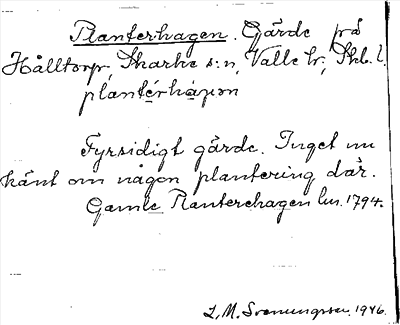 Planterhagen. Gärde på
Hålltorp, Skarke s:n, Valle hr, Skb. l.
plantérhá̱gən
Fyrsidigt gärde. Inget nu
känt om någon plantering där.
Gamle Planterehagen lm. 1794.
L. M. Svenungsson 1946.